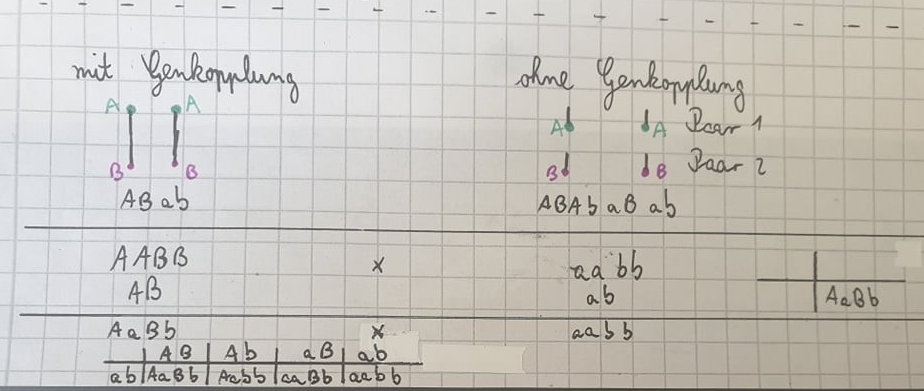 mit Genkopplung ohne Genkopplung
A A A A Paar 1
B B B B Paar 2
AB ab ABAb aB ab
AABB x aa bb
AB ab AaBb
AaBb x aabb
AB Ab aB ab
ab AaBb Aabb aaBb aabb